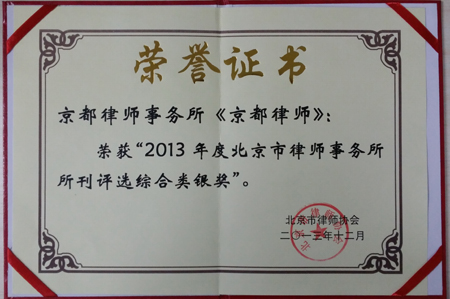 荣誉证书
京都律师事务所《京都律师》:
荣获“2013 年度北京市律师事务所
所刊评选综合类银奖”。
北京市律师协会
二〇一三年十二月